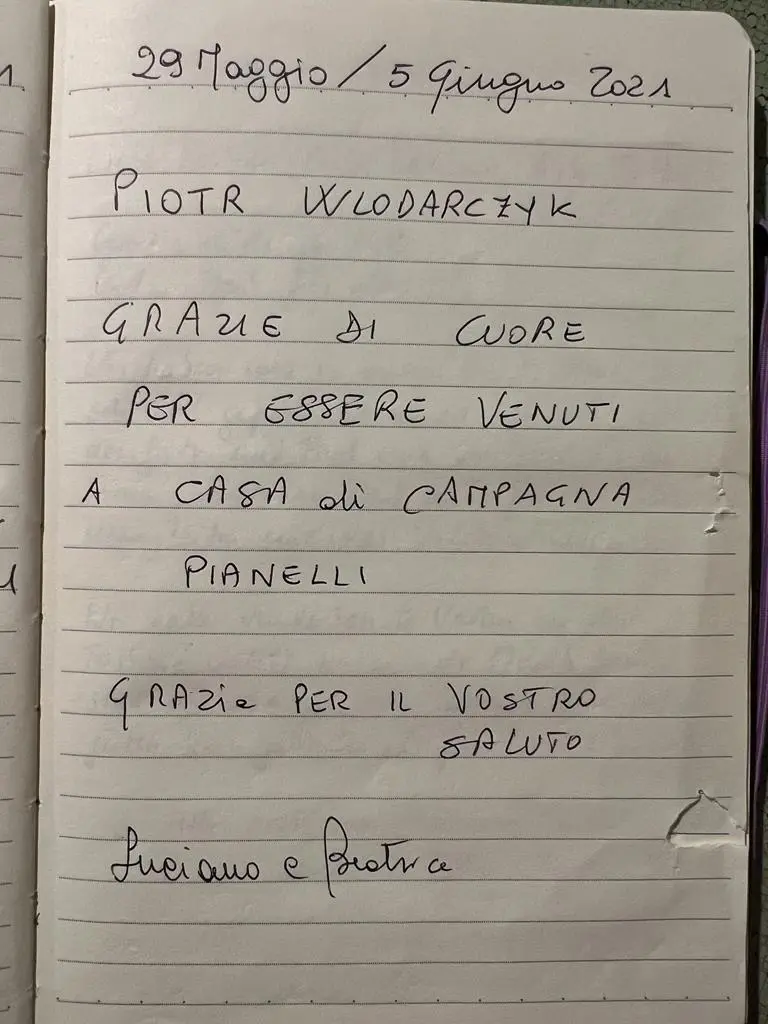 29 Maggio / 5 Giugno 2021
PIOTR WLODARCZYK
GRAZIE DI CUORE
PER ESSERE VENUTI
A CASA di CAMPAGNA
PIANELLI
GRAZie PER IL VOSTRO
SALUTO
Luciano e Beatrice